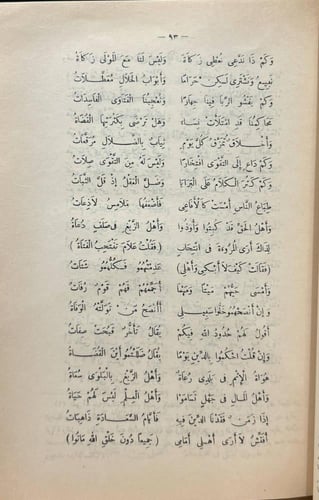 — ٩٣ —
وَكَمْ ذَا نَدَّعِي نُعْطِي زَكَاةً وَلَيْسَ لَنَا مَعَ الْمَوْلَى زَكَاةُ
نَبِيعُ وَنَشْتَرِي لَكِنْ حَرَامًا وَأَبْوَابُ الْحَلَالِ مُعَطَّلَاتُ
وَكَمْ يَفْشُو الرِّبَا فِينَا جِهَارًا وَتُعْجِبُنَا الْفَتَاوَى الْفَاسِدَاتُ
مَحَاكِمُنَا قَدِ امْتَلَأَتْ فَسَادًا وَهَلْ تَرْضَى بِكَثْرَتِهَا الْقُضَاةُ
وَأَخْلَاقٌ تُمَزَّقُ كُلَّ يَوْمٍ ثِيَابٌ بِالضَّلَالِ مُرَقَّعَاتُ
وَكَمْ دَاعٍ إِلَى التَّقْوَى افْتِخَارًا وَلَيْسَ لَهُ مِنَ التَّقْوَى صِلَاتُ
وَكَمْ كَثُرَ الْكَلَامُ عَلَى الْبَرَايَا وَضَلَّ الْعَقْلُ إِذْ قَلَّ الثَّبَاتُ
طِبَاعُ النَّاسِ أَمْسَتْ كَالْأَفَاعِي فَأَنْعَمُهَا مَلَامِسَ لَاذِعَاتُ
وَأَهْلُ الْحَقِّ قَدْ كُبِتُوا وَأُوذُوا وَأَهْلُ الزَّيْغِ فِي صَلَفٍ دُعَاةُ
لِذَاكَ أَرَى الْمُرُوءَةَ فِي انْتِحَابٍ (فَقُلْتُ عَلَامَ تَنْتَحِبُ الْفَتَاةُ)
(فَقَالَتْ كَيْفَ لَا أَبْكِي وَأَهْلِي) عَدِمْتُهُمُو فَكُلُّهُمُو شَتَاتُ
وَأَمْسَى حَيُّهُمْ مَيْتًا وَمَيْتٌ أَجَمُّهُمْ فَهُمْ قَوْمٌ رُفَاتُ
وَإِنَّ الْحَقَّ قَدْ جَهِلُوهُ جَهْلًا أَأَنْصَحُ مَنْ تَوَلَّتْهُ الْوَفَاةُ
أَقُولُ لَهُمْ حُدُودُ اللهِ فِيكُمْ يُقَالُ تَأَخُّرٌ قَبُحَتْ صِفَاتُ
وَإِنْ قُلْتُ احْكُمُوا بِالدِّينِ يَوْمًا يُقَالُ ضَلَلْتُمُو أَيْنَ الْقُضَاةُ
هُوَاةُ الْإِثْمِ فِي بَلَدِي رُعَاةٌ وَأَهْلُ الزَّيْغِ بِالْبَلْوَى سُعَاةُ
وَأَهْلُ الْمَالِ فِي جَهْلٍ تَسَامَوْا وَأَهْلُ الْعِلْمِ لَيْسَ لَهُمْ حَيَاةُ
إِذَا زَمَنٌ فَقَدْنَا الدِّينَ فِيهِ فَأَيَّامُ السَّعَادَةِ ذَاهِبَاتُ
أُفَتِّشُ لَا أَرَى أَهْلِي أَمَامِي (جَمِيعًا دُونَ خَلْقِ اللهِ مَاتُوا)